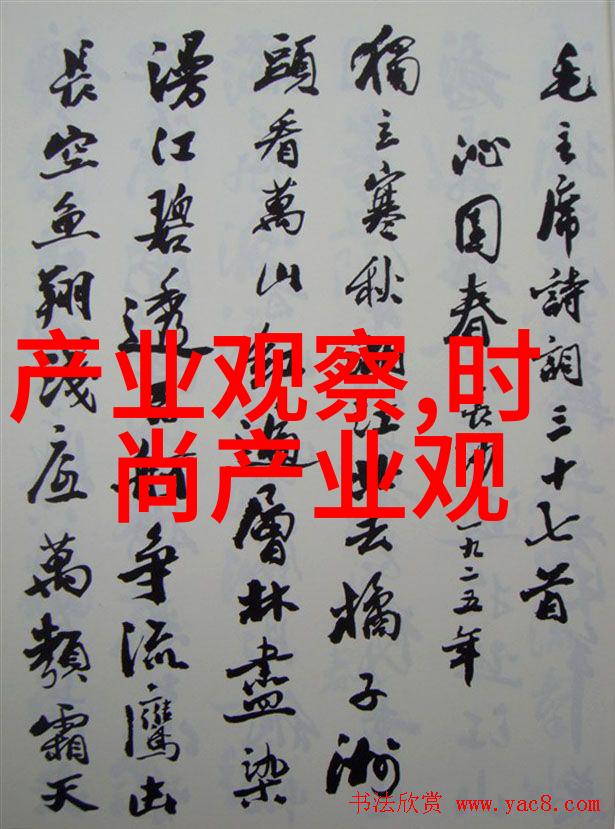 毛主席詩詞三十七首
沁園春 長沙 一九二五年
獨立寒秋 江北去橘子洲
頭看萬山紅遍層林盡染
漫江碧透 爭流鷹击
長空魚翔淺底萬類霜天
产业观察,时
尚产业观
书法欣赏 www.yac8.com